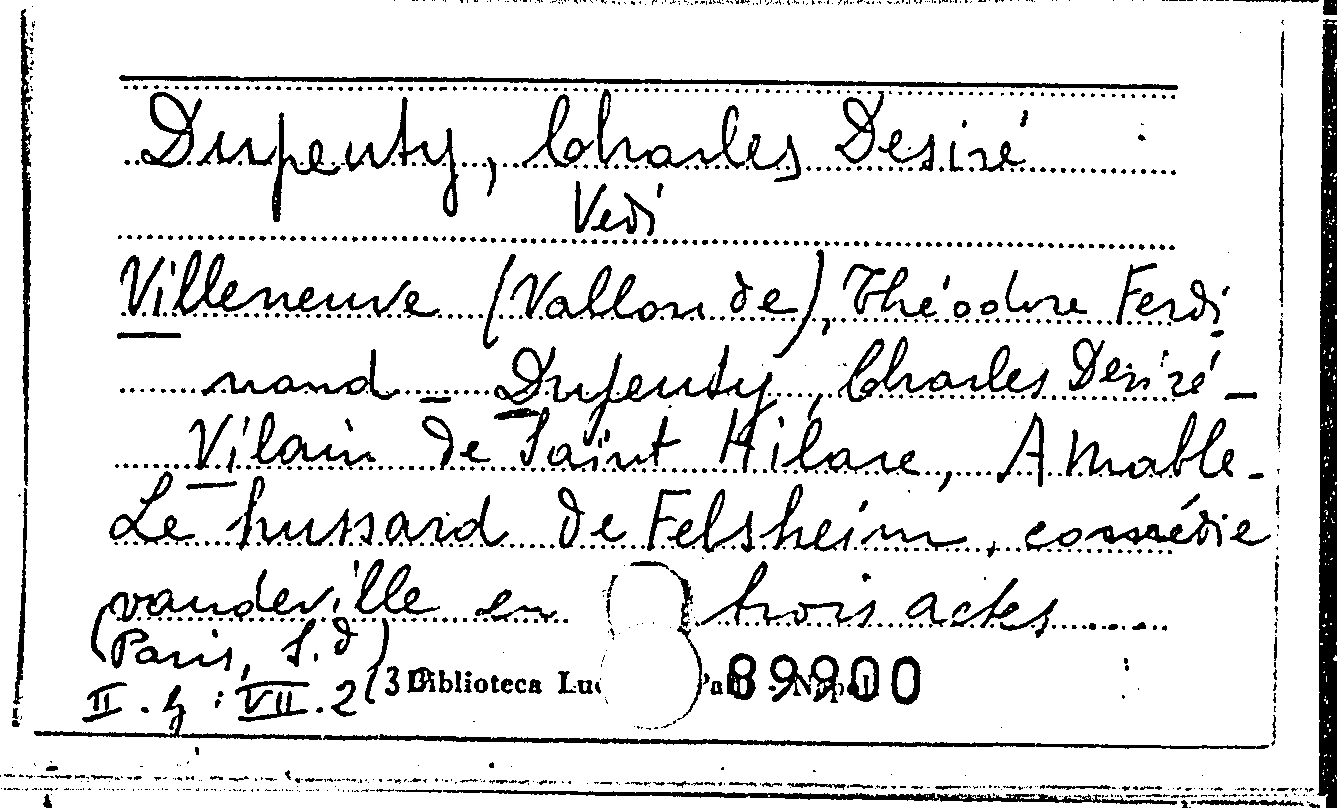 Dupeuty, Charles Desiré
Vedi
Villeneuve (Vallon de), Théodore Ferdi
nand - Dupeuty, Charles Desiré -
Vilain de Saint Hilare, Amable -
Le hussard de Felsheim, comédie
vaudeville en trois actes ....
(Paris, s.d)
II. 4 : VII. 2(3 Biblioteca 89900